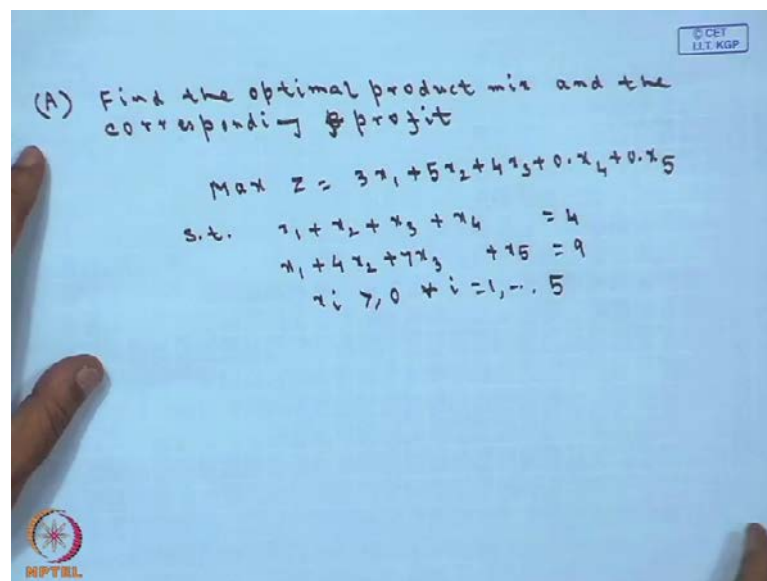 © CET
I.I.T. KGP
(A) Find the optimal product mix and the
corresponding profit
Max Z = 3x₁ + 5x₂ + 4x₃ + 0·x₄ + 0·x₅
s.t. x₁ + x₂ + x₃ + x₄ = 4
x₁ + 4x₂ + 7x₃ + x₅ = 9
xᵢ ≥ 0 ∀ i = 1, ... 5
NPTEL